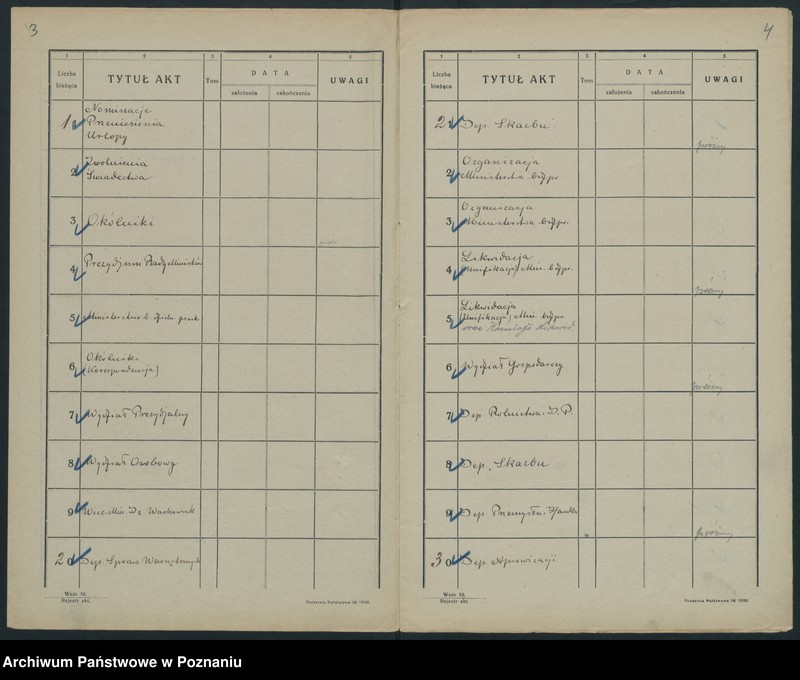 3
1 2 3 4 5
Liczba bieżąca TYTUŁ AKT Tom DATA UWAGI
założenia zakończenia
1 Nominacje
Przeniesienia
Urlopy
2 Zwolnienia
Świadectwa
3 Okólniki
4 Prezydjum Rady Ministrów
5 Ministerstwo b. dzieln. prusk.
6 Okólniki
(Korespondencja)
7 Wydział Prezydjalny
8 Wydział Osobowy
9 Wice-Min. Dr. Wachowiak
20 Dep. Spraw Wewnętrznych
Wzór 10.
Rejestr akt.
Drukarnia Państwowa
4
1 2 3 4 5
Liczba bieżąca TYTUŁ AKT Tom DATA UWAGI
założenia zakończenia
21 Dep. Skarbu
próżny
2 Organizacja
Ministerstwa b. dz. pr.
3 Organizacja
Ministerstwa b. dz. pr.
4 Likwidacja
(Unifikacja) Min. b. dz. pr.
próżny
5 Likwidacja
(Unifikacja) Min. b. dz. pr.
oraz Komisja Likwid.
6 Wydział Gospodarczy
próżny
7 Dep. Rolnictwa i D. P.
8 Dep. Skarbu
9 Dep. Przemysłu i Handlu
próżny
30 Dep. Aprowizacji
Wzór 10.
Rejestr akt.
Drukarnia Państwowa
Archiwum Państwowe w Poznaniu